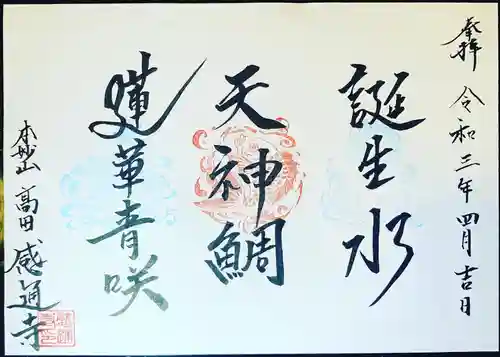 奉拝
令和三年四月吉日
誕生水
天神鯛
蓮華青咲
本妙山 高田 感通寺